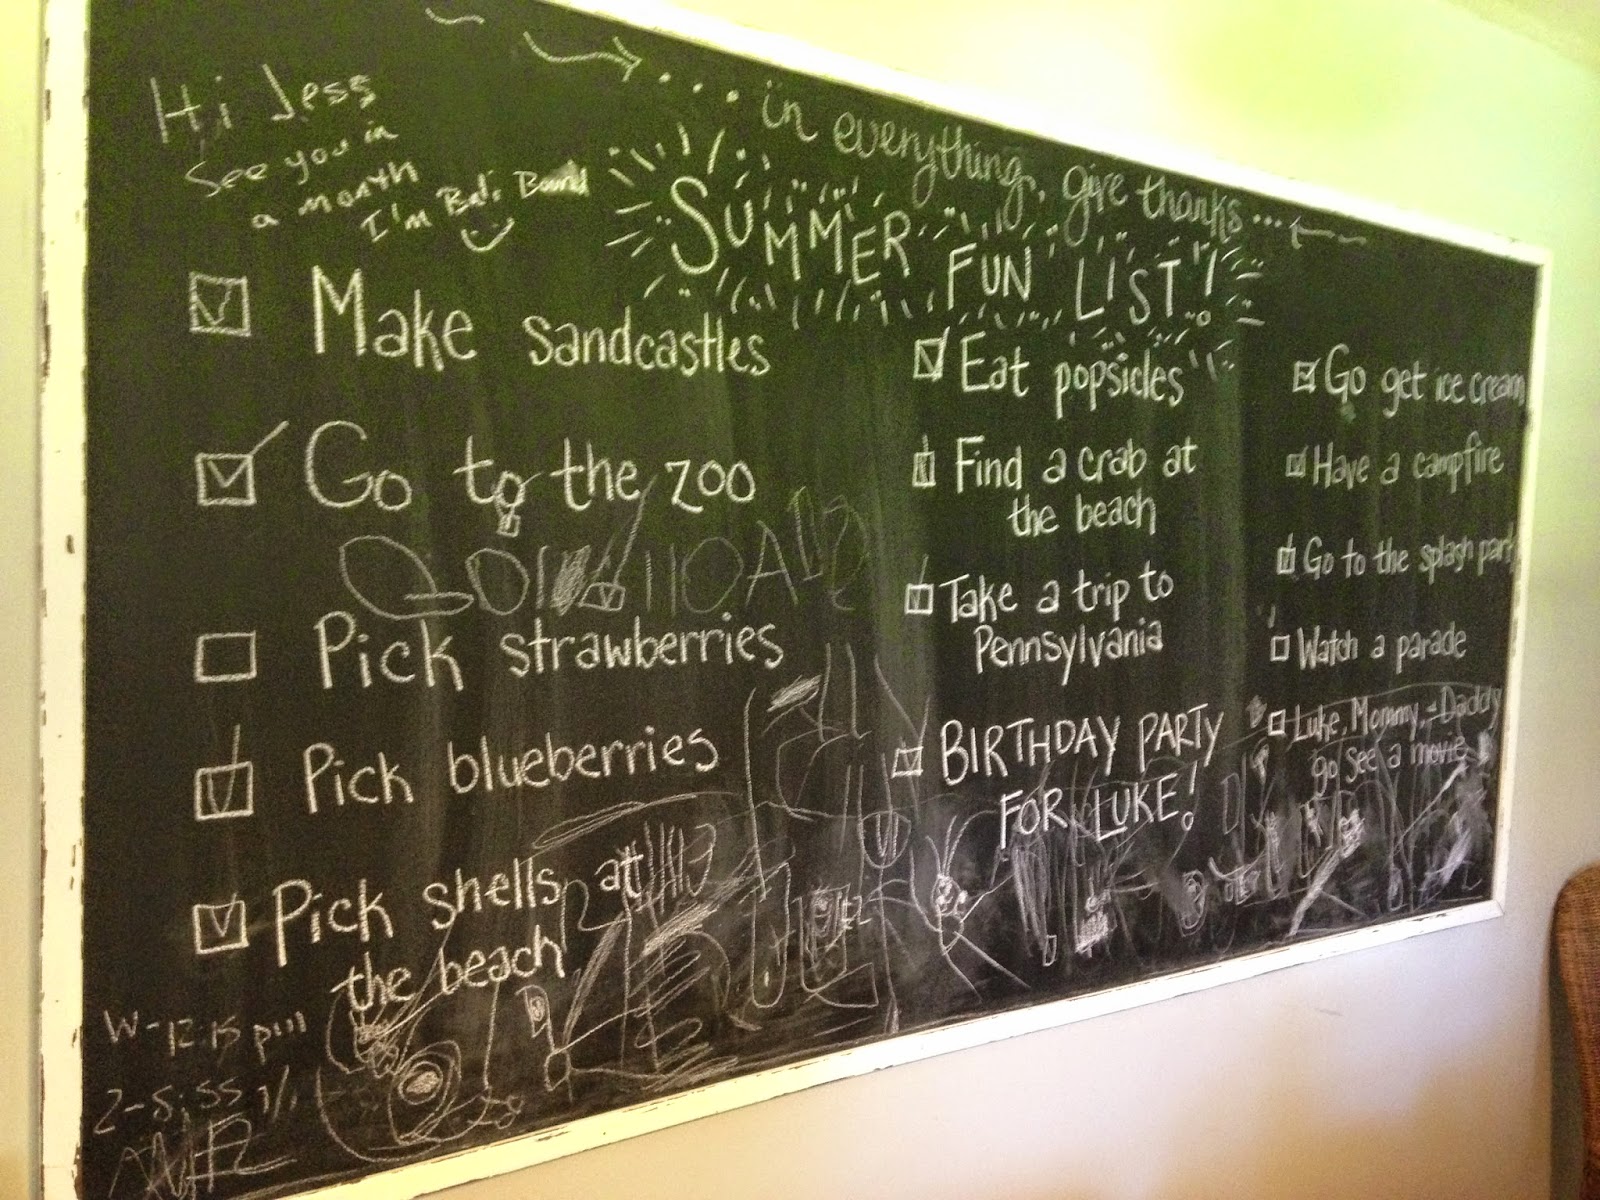 ... in everything, give thanks...
Hi Jess
See you in
a month
I'm Bali Bound
SUMMER FUN LIST!
Make sandcastles
Go to the zoo
Pick strawberries
Pick blueberries
Pick shells at
the beach
Eat popsicles
Find a crab at
the beach
Take a trip to
Pennsylvania
BIRTHDAY PARTY
FOR LUKE!
Go get ice cream
Have a campfire
Go to the splash park
Watch a parade
Luke, Mommy, + Daddy
go see a movie
W-12:15 pill